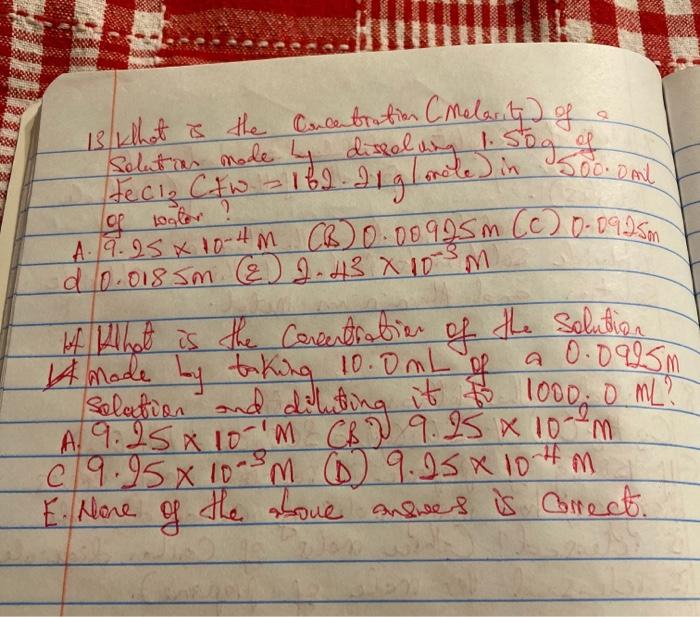 13 What is the Concentration (Molarity) of a
Solution made by dissolving 1.50g of
FeCl3 (fw = 162.21g/mole) in 500.0ml
of water?
A. 9.25 x 10-4 M (B) 0.00925m (C) 0.0925m
d 0.0185m (E) 2.43 x 10-3 M
14 What is the Concentration of the Solution
14 made by taking 10.0mL of a 0.0925m
Solution and diluting it to 1000.0 mL?
A. 9.25 x 10-1 M (B) 9.25 x 10-2 m
C 9.25 x 10-3 M (D) 9.25 x 10-4 M
E. None of the above answers is Correct.